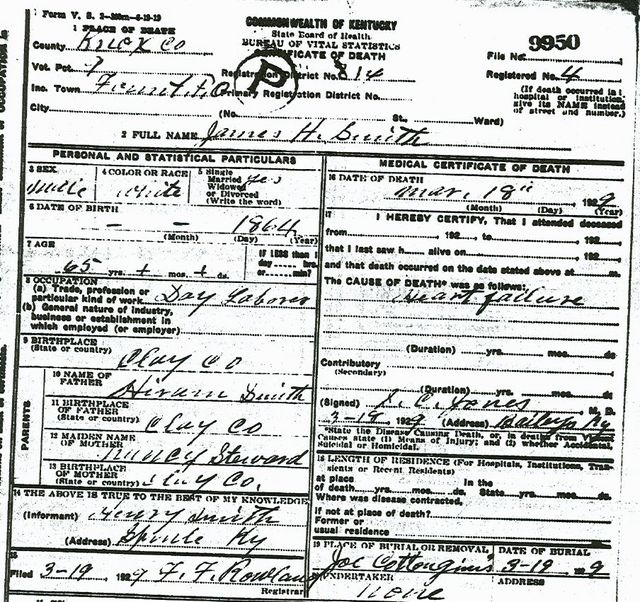 Form V. S. 2-20m-6-19-19
COMMONWEALTH OF KENTUCKY
State Board of Health
BUREAU OF VITAL STATISTICS
CERTIFICATE OF DEATH
1 PLACE OF DEATH
County Knox Co
File No. 9950
Vot. Pct. 7
Registration District No. 814
Registered No. 4
Inc. Town
Primary Registration District No.
(If death occurred in a hospital or institution, give its NAME instead of street and number.)
City (No. St., Ward)
2 FULL NAME James H. Smith
PERSONAL AND STATISTICAL PARTICULARS
3 SEX male
4 COLOR OR RACE white
5 Single Married Widowed or Divorced (Write the word) yes
6 DATE OF BIRTH
— — 1864
(Month) (Day) (Year)
7 AGE
65 yrs. + mos. + ds.
IF LESS than 1 day hrs. or min?
8 OCCUPATION
(a) Trade, profession or particular kind of work Day Laborer
(b) General nature of industry, business or establishment in which employed (or employer)
9 BIRTHPLACE
(State or country) Clay Co
PARENTS
10 NAME OF FATHER Hiram Smith
11 BIRTHPLACE OF FATHER
(State or country) Clay Co
12 MAIDEN NAME OF MOTHER Nancy Steward
13 BIRTHPLACE OF MOTHER
(State or country) Clay Co.
14 THE ABOVE IS TRUE TO THE BEST OF MY KNOWLEDGE
(Informant) Henry Smith
(Address) Ky
15
Filed 3-19 1929 F. F. Rowland
Registrar
MEDICAL CERTIFICATE OF DEATH
16 DATE OF DEATH
Mar. 18" 1929
(Month) (Day) (Year)
17 I HEREBY CERTIFY, That I attended deceased
from 192 , to 192
that I last saw h alive on 192
and that death occurred on the date stated above at m.
The CAUSE OF DEATH* was as follows:
Heart failure
(Duration) yrs. mos. ds.
Contributory
(Secondary)
(Duration) yrs. mos. ds.
(Signed) Jones M. D.
3-19 1929 (Address) Baileys Ky
*State the Disease Causing Death, or, in deaths from Violent Causes state (1) Means of Injury; and (2) whether Accidental, Suicidal or Homicidal.
18 LENGTH OF RESIDENCE (For Hospitals, Institutions, Transients or Recent Residents)
at place of death yrs. mos. ds. In the State yrs. mos. ds.
Where was disease contracted,
if not at place of death?
Former or usual residence
19 PLACE OF BURIAL OR REMOVAL
DATE OF BURIAL
Joe 3-19 1929
UNDERTAKER
ADDRESS
none